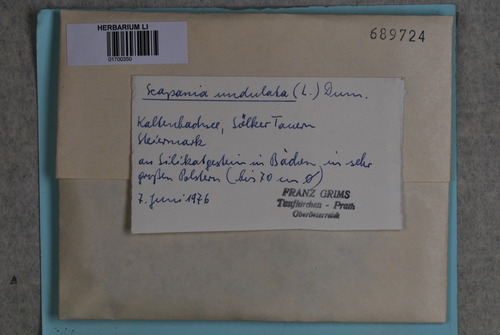 HERBARIUM LI
01700350
689724
Scapania undulata (L.) Dum.
Kaltenbachsee, Sölker Tauern
Steiermark
an Silikatgestein in Bächen, in sehr
großen Polstern (bis 70 cm Ø)
7. Juni 1976
FRANZ GRIMS
Taufkirchen - Pram
Oberösterreich